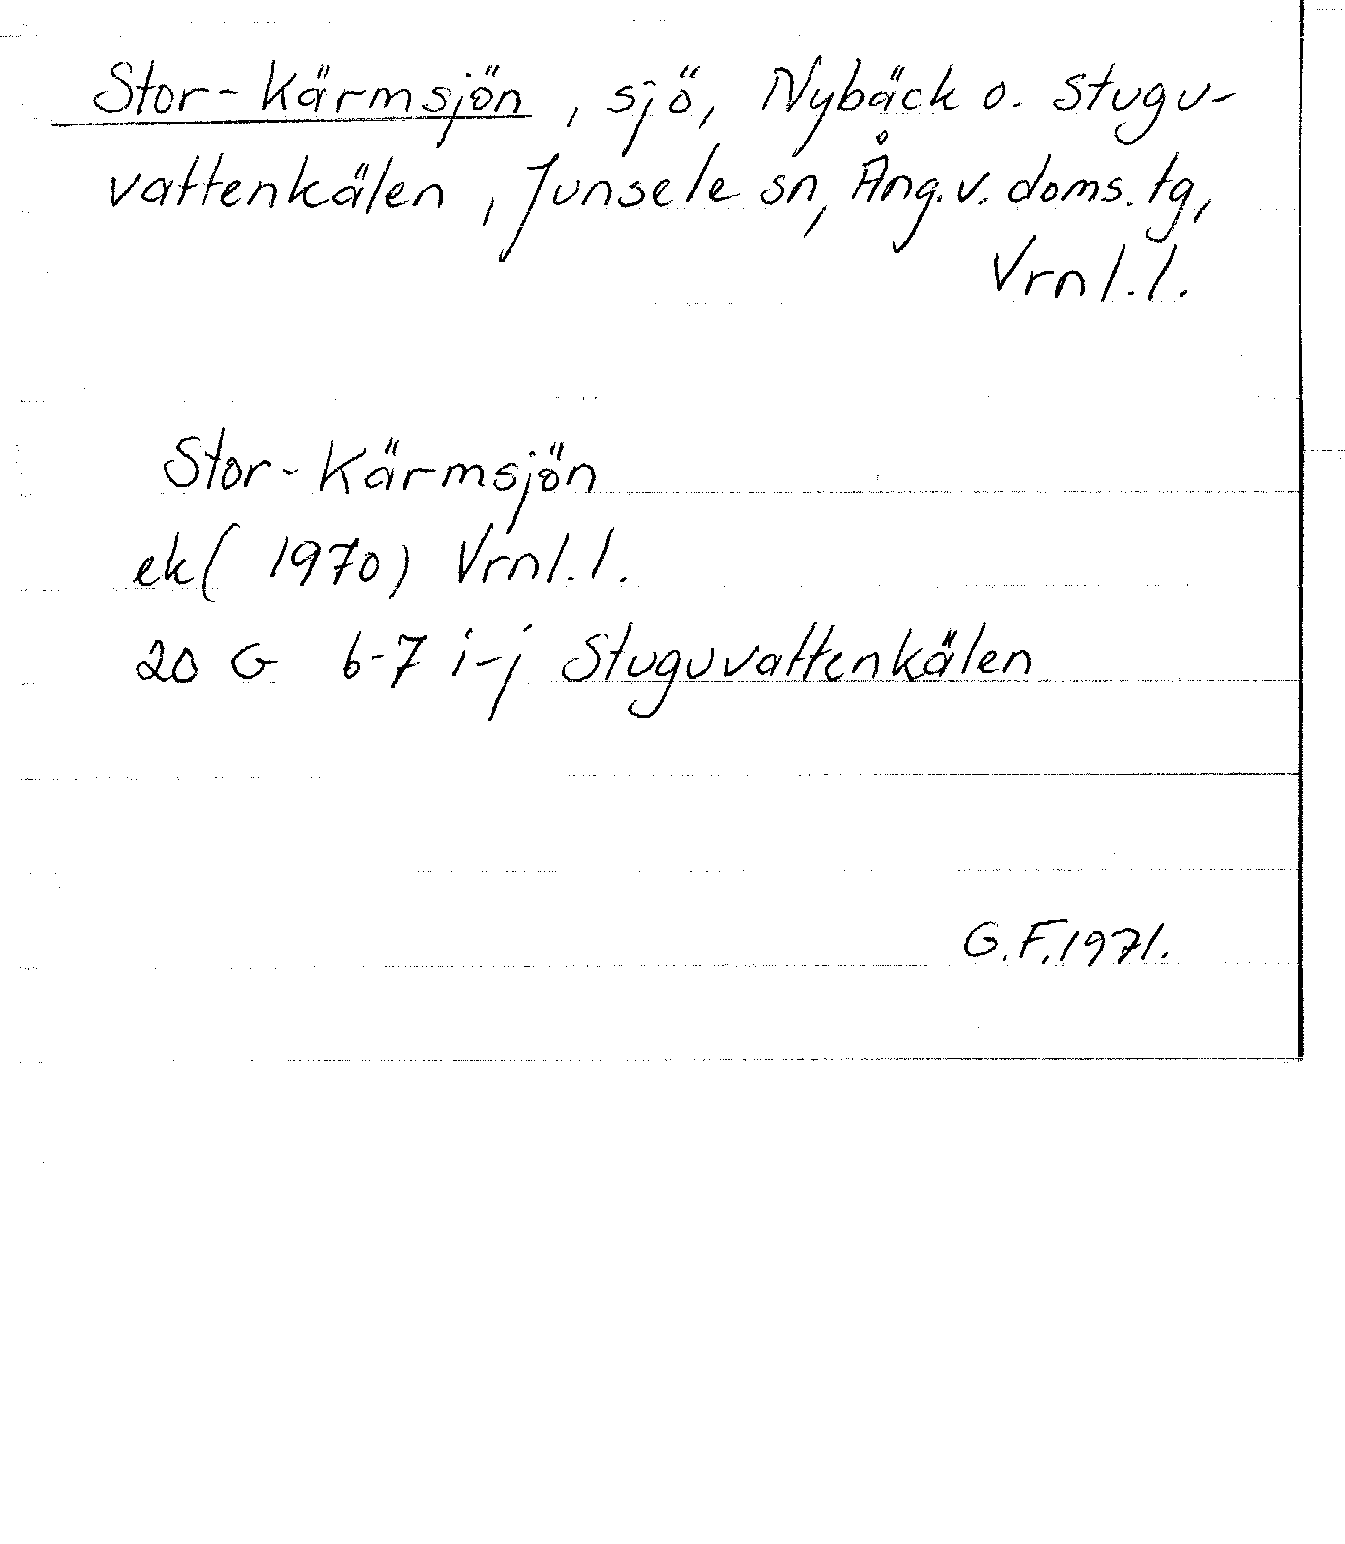 Stor-Kärmsjön, sjö, Nybäck o. Stugu-
vattenkälen, Junsele sn, Ång.v. doms. tg,
Vrnl.l.
Stor-Kärmsjön
ek (1970) Vrnl.l.
20 G 6-7 i-j Stuguvattenkälen
G.F. 1971.